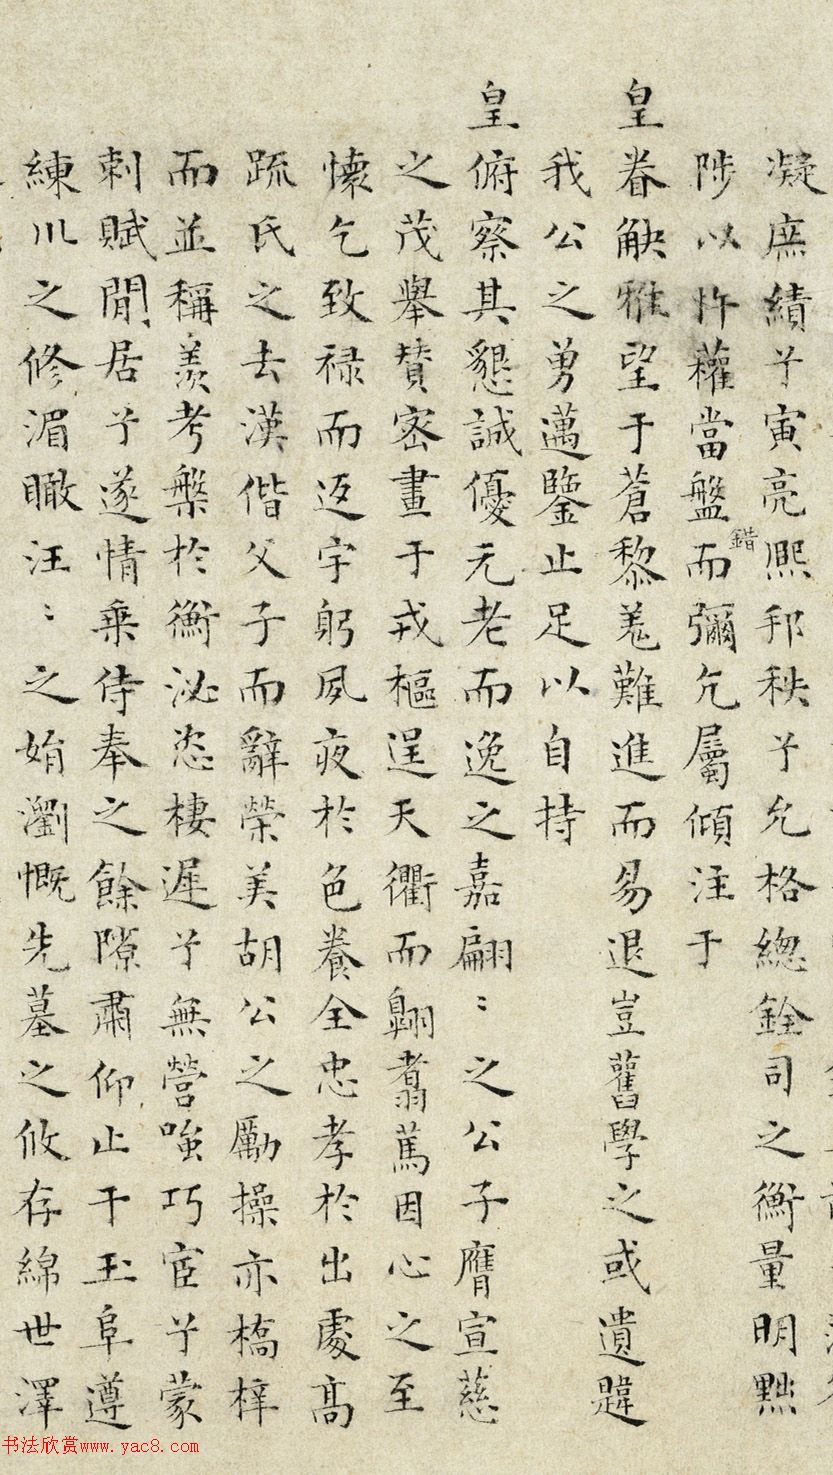 凝庶績兮寅亮熙邦秩兮允格總銓司之衡量明黜
陟以忤權當盤錯而彌允屬傾注于
皇眷觖雅望于蒼黎羌難進而易退豈舊學之或遺韙
我公之勇邁鑒止足以自持
皇俯察其懇誠優元老而逸之嘉翩〻之公子膺宣慈
之茂舉贊密畫于戎樞逞天衢而翱翥篤因心之至
懷乞致祿而返宇躬夙夜於色養全忠孝於出處高
疏氏之去漢偕父子而辭榮美胡公之勵操亦橋梓
而並稱羨考槃於衡泌恣棲遲兮無營嗤巧宦兮蒙
刺賦閒居兮遂情乘侍奉之餘隙肅仰止于玉阜遵
練川之修湄瞰汪〻之婧瀏慨先墓之攸存綿世澤
书法欣赏www.yac8.com